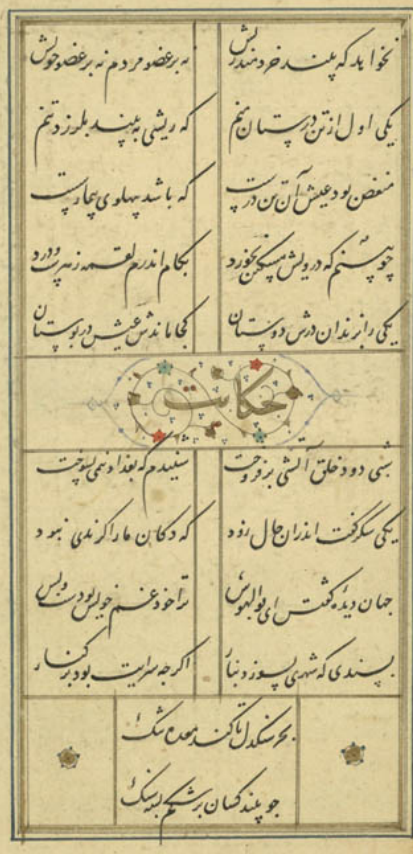 نخواهد که بیند خردمند ریش نه بر عضو مردم نه بر عضو خویش
یکی اول از تن درستان منم که ریشی به بیند بلرزد تنم
منغص بود عیش آن تن درست که باشد پهلوی بیمار سست
چو بینم که درویش مسکین نخورد بکام اندرم لقمه زهرست و درد
یکی را بزندان درش دوستان کجا ماندش عیش در بوستان
حکایت
شبی دود خلق آتشی برفروخت شنیدم که بغداد نیمی بسوخت
یکی شکر گفت اندران حال زود که دکان ما را گزندی نبود
جهان دیده گفتش ای بوالهوس ترا خود غم خویش بودست و بس
پسندی که شهری بسوزد بنار اگرچه سرایت بود بر کنار
بجز سنگدل تا کند معده تنک
چو بیند کسان بر شکم بسته سنک